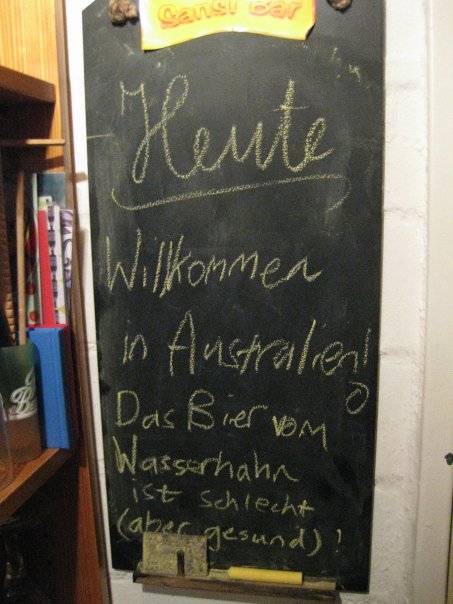 Gansl Bar
Heute
Willkommen
in Australien!
Das Bier vom
Wasserhahn
ist schlecht
(aber gesund)!